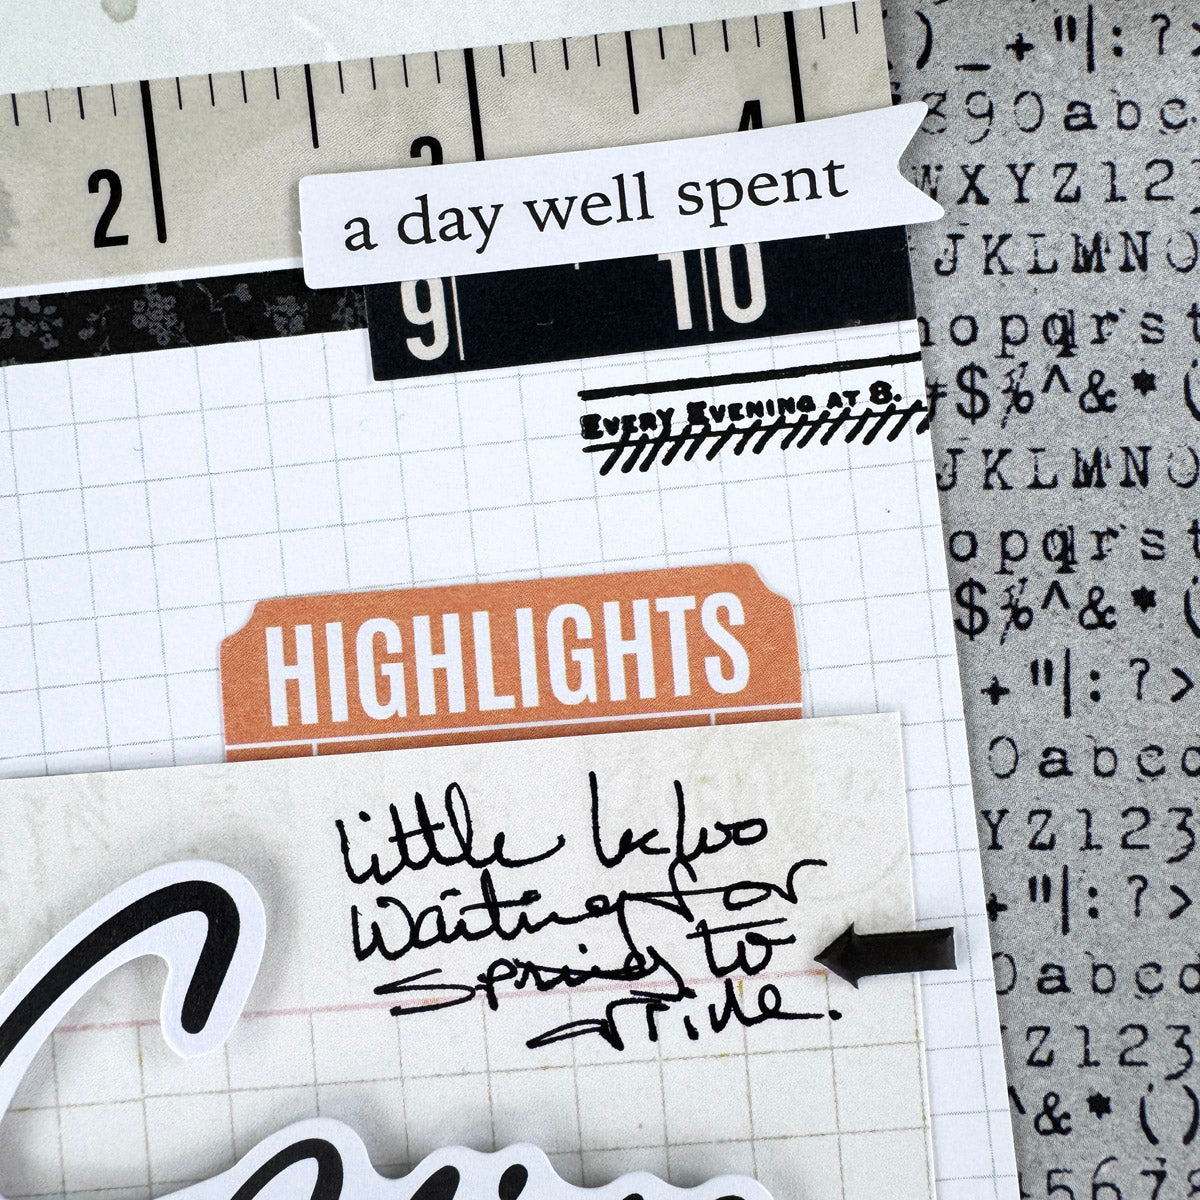 2 3 4
a day well spent
9 10
EVERY EVENING AT 8.
HIGHLIGHTS
Little
Waiting for
Spring to
arrive.
) _ + " | : ? >
890abc
WXYZ123
JKLMNO
nopqrst
#$%^&*(
JKLMNO
opqrst
$%^&*(
+ " | : ? >
0abcd
YZ123
+ " | : ? >
0abcd
Z123
^&*()
5678